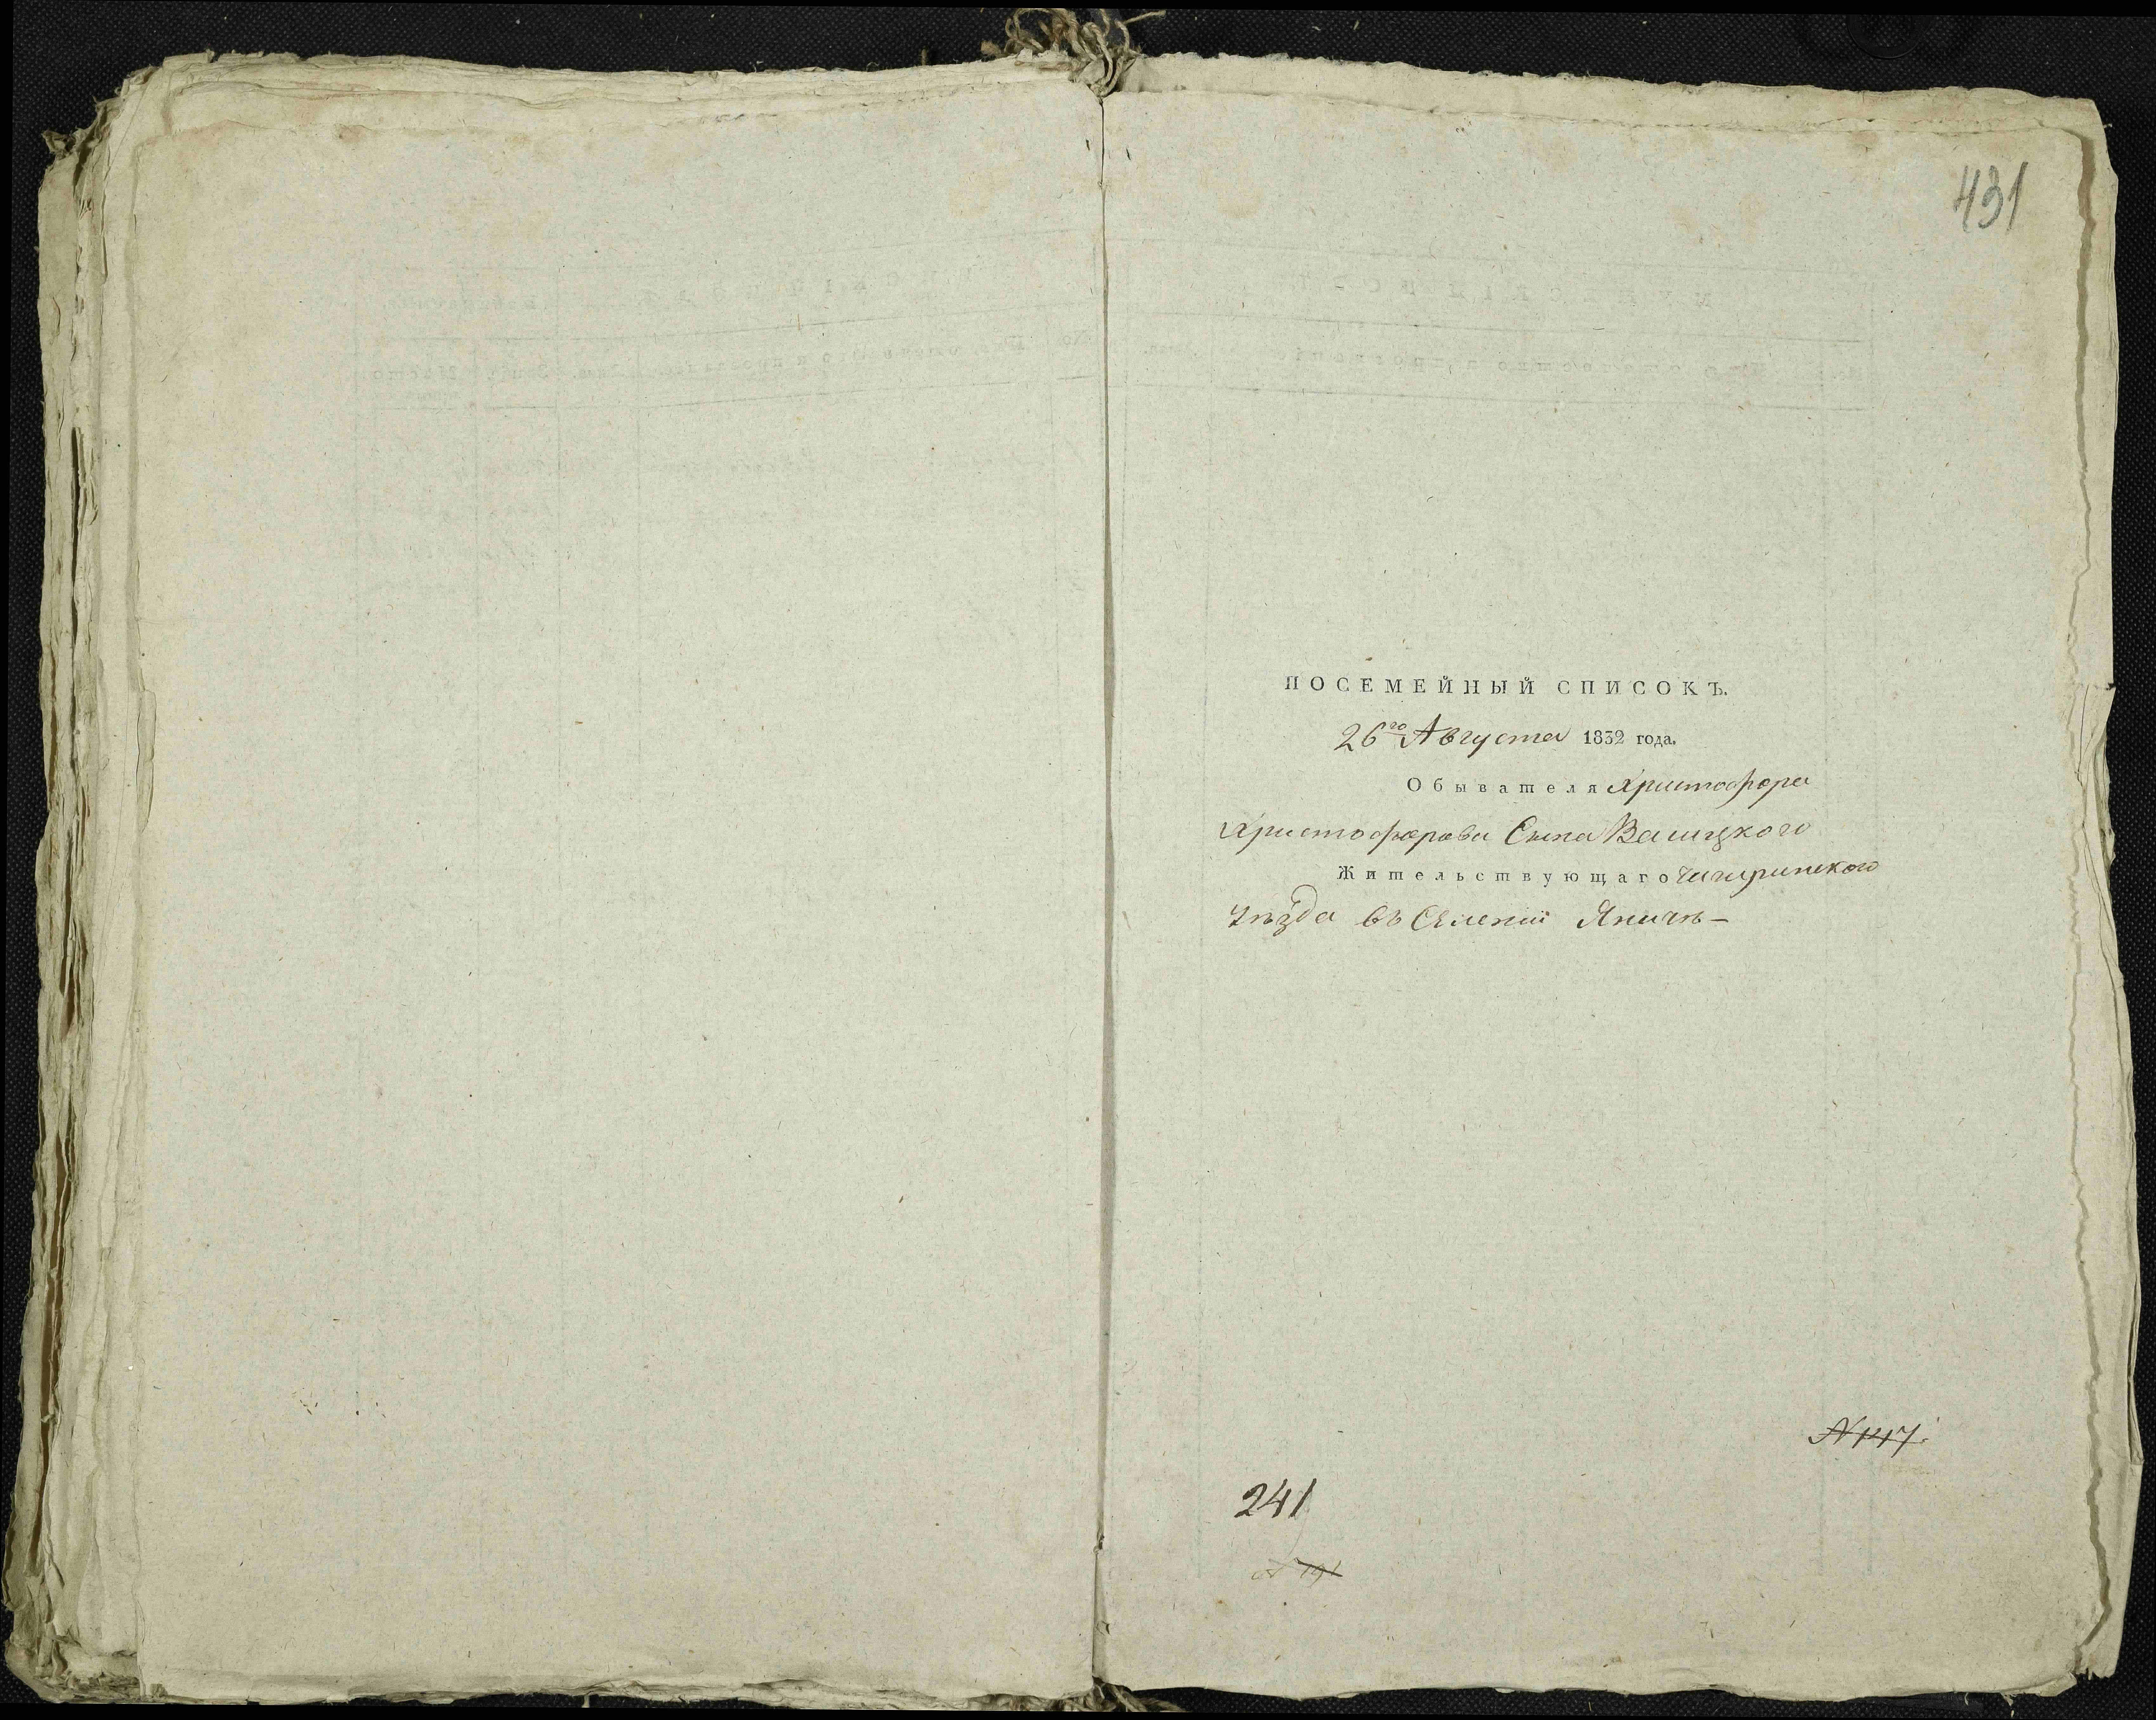 431
ПОСЕМЕЙНЫЙ СПИСОКЪ.
26го Августа 1832 года.
Обывателя Христофора
Христофорова Сына
Жительствующаго Чигиринского
Уѣзда въ Селенiи Яничѣ —
N 147.
241
N 191